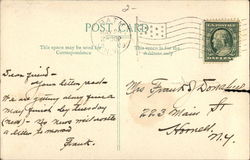 2-
POST CARD
This space may be used for Correspondence
This space is for Address
Dear friend -
Your letter, read
We are getting along fine
may finish by tuesday
(next) - No news will write
a letter to-morrow
Frank.
Mrs Frank J Donahue
223 Main St
Hornell
N.Y.